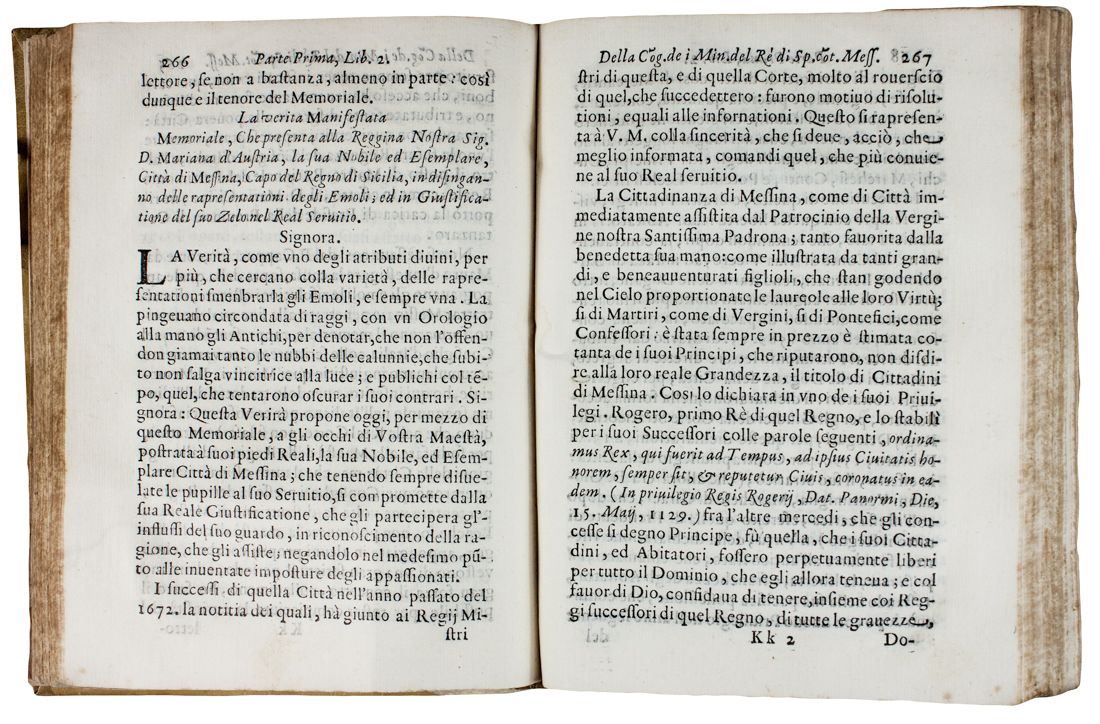 266 Parte Prima, Lib. 2.
lettore, ſe non a baſtanza, almeno in parte: così
dunque e il tenore del Memoriale.
La verita Manifeſtata
Memoriale, Che preſenta alla Reggina Noſtra Sig.
D. Mariana d'Auſtria, la ſua Nobile ed Eſemplare,
Città di Meſſina, Capo del Regno di Sicilia, in diſingan-
no delle rapreſentationi degli Emoli; ed in Giuſtifica-
tione del ſuo Zelo nel Real Seruitio.
Signora.
LA Verità, come vno degli attributi diuini, per
più, che cercano colla varietà, delle rapre-
ſentationi ſmenbrarla gli Emoli, e ſempre vna. La
pingeuano circondata di raggi, con vn Orologio
alla mano gli Antichi, per denotar, che non l'offen-
don giamai tanto le nubbi delle calunnie, che ſubi-
to non ſalga vincitrice alla luce; e publichi col tẽ-
po, quel, che tentarono oſcurar i ſuoi contrari. Si-
gnora: Queſta Verirà propone oggi, per mezzo di
queſto Memoriale, a gli occhi di Voſtra Maeſtà,
poſtrata à ſuoi piedi Reali, la ſua Nobile, ed Eſem-
plare Città di Meſſina; che tenendo ſempre diſue-
late le pupille al ſuo Seruitio, ſi con promette dalla
ſua Reale Giuſtificatione, che gli partecipera gl'-
influſſi del ſuo guardo, in riconoſcimento della ra-
gione, che gli aſſiſte; negandolo nel medeſimo pũ-
to alle inuentate impoſture degli appaſſionati.
I ſucceſſi di queſta Città nell'anno paſſato del
1672. la notitia dei quali, hà giunto ai Regij Mi-
ſtri
Della Cõg. de i Min. del Rè di Sp. cõt. Meſſ. 267
ſtri di queſta, e di quella Corte, molto al rouerſcio
di quel, che ſuccedettero: furono motiuo di riſolu-
tioni, equali alle infornationi. Queſto ſi rapreſen-
ta à V. M. colla ſincerità, che ſi deue, acciò, che
meglio informata, comandi quel, che più conuie-
ne al ſuo Real ſeruitio.
La Cittadinanza di Meſſina, come di Città im-
mediatamente aſſiſtita dal Patrocinio della Vergi-
ne noſtra Santiſſima Padrona; tanto fauorita dalla
benedetta ſua mano: come illuſtrata da tanti gran-
di, e beneauuenturati figlioli, che ſtan godendo
nel Cielo proportionate le laureole alle loro Virtù;
ſi di Martiri, come di Vergini, ſi di Pontefici, come
Confeſſori: è ſtata ſempre in prezzo è ſtimata co-
tanta de i ſuoi Principi, che riputarono, non diſdi-
re alla loro reale Grandezza, il titolo di Cittadini
di Meſſina. Coſi lo dichiara in vno de i ſuoi Priui-
legi. Rogero, primo Rè di quel Regno, e lo ſtabilì
per i ſuoi Succeſſori colle parole ſeguenti, ordina-
mus Rex, qui fuerit ad Tempus, ad ipſius Ciuitatis ho-
norem, ſemper ſit, & reputetur Ciuis, coronatus in ea-
dem. (In priuilegio Regis Rogerij, Dat. Panormi, Die,
15. Maij, 1129.) fra l'altre mercedi, che gli con-
ceſſe ſi degno Principe, fù quella, che i ſuoi Citta-
dini, ed Abitatori, foſſero perpetuamente liberi
per tutto il Dominio, che egli allora teneua; e col
fauor di Dio, confidaua di tenere, inſieme coi Reg-
gi ſucceſſori di quel Regno, di tutte le grauezze,
Kk 2 Do-